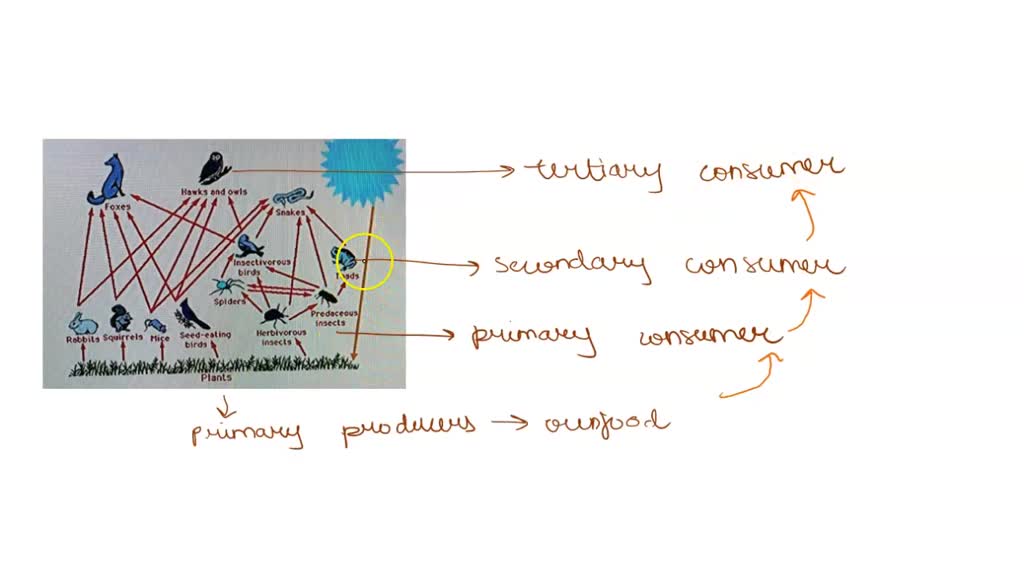 Foxes
Hawks and owls
Snakes
Insectivorous
birds
Toads
Spiders
Predaceous
insects
Rabbits Squirrels Mice Seed-eating
birds
Herbivorous
insects
Plants
tertiary consumer
secondary consumer
primary consumer
primary producers → ownfood